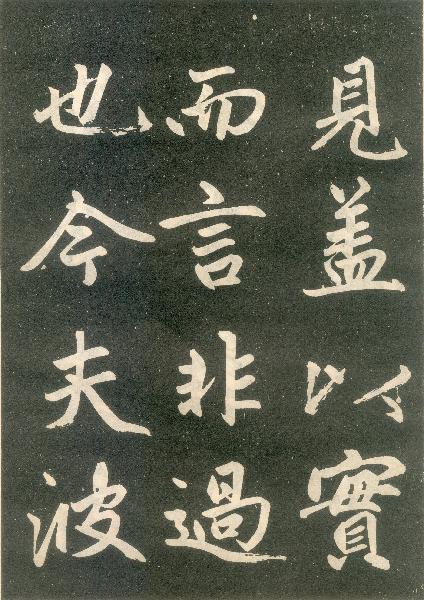 見盖以實
而言非過
也今夫波